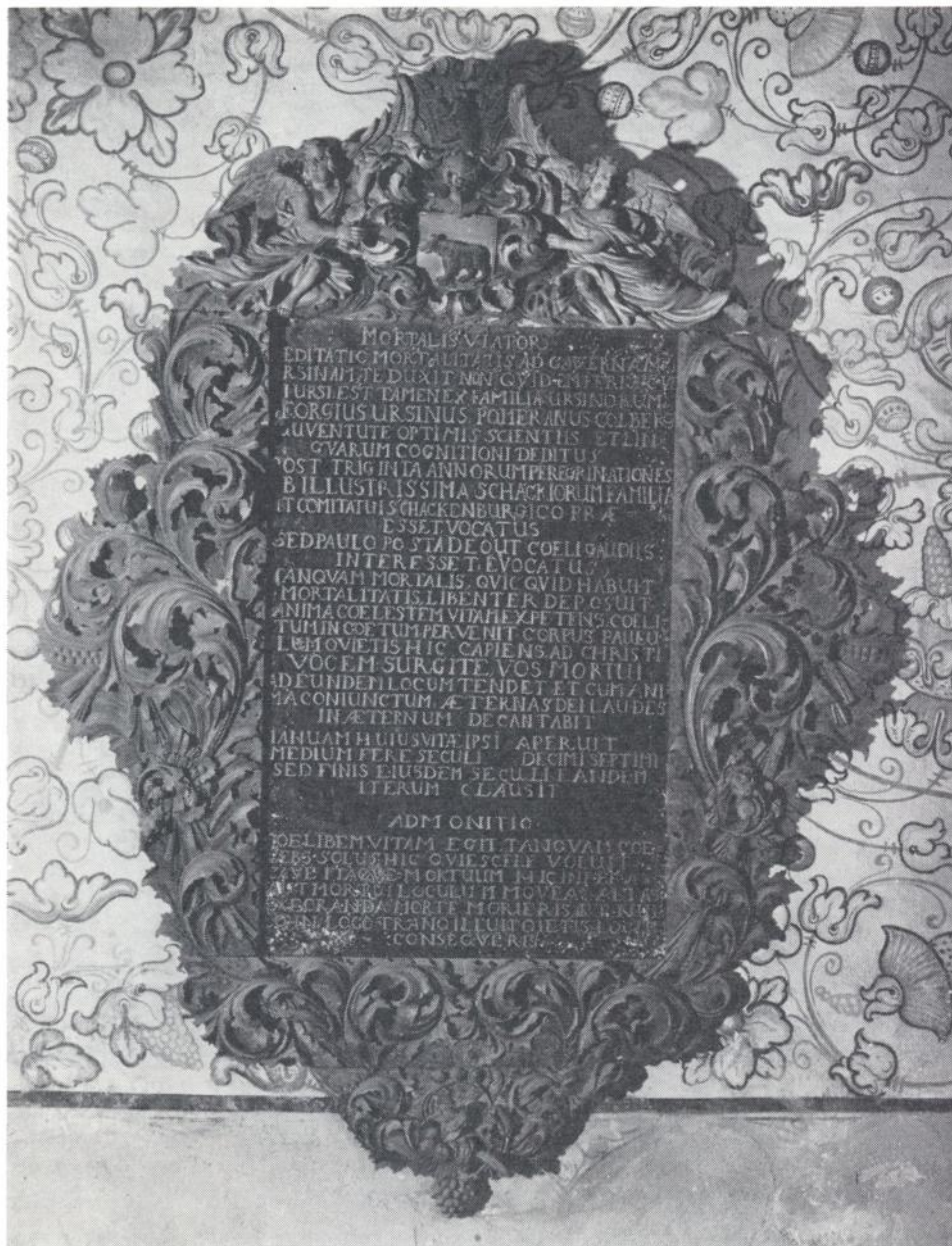 MORTALIS VIATOR
EDITATIO MORTALITATIS AD CAVERNAM
RSINAM TE DUXIT NON QVIDEM
URSI EST TAMEN EX FAMILIA URSINORUM
EORGIUS URSINUS POMERANUS COLBERG
IUVENTUTE OPTIMIS SCIENTIIS ET LIN
GVARUM COGNITIONI DEDITUS
OST TRIGINTA ANNORUM PEREGRINATIONES
B ILLUSTRISSIMA SCHACKIORUM FAMILIA
ET COMITATUI SCHACKENBURGICO PRÆ
ESSET VOCATUS
SED PAULO POST A DEO UT COELI GAUDIIS
INTERESSET. EVOCATUS
TANQVAM MORTALIS. QVICQVID HABUIT
MORTALITATIS. LIBENTER DEPOSUIT
ANIMA COELESTEM VITAM EXPETENS. COELI
TUM IN COETUM PERVENIT CORPUS PAULU
LUM QVIETIS HIC CAPIENS. AD CHRISTI
VOCEM. SURGITE VOS MORTUI
AD EUNDEM LOCUM TENDET ET CUM ANI
MA CONIUNCTUM ÆTERNAS DEI LAUDES
IN ÆTERNUM DECANTABIT
IANUAM HUIUS VITÆ IPSI APERUIT
MEDIUM FERE SECULI DECIMI SEPTIMI
SED FINIS EIUSDEM SECULI EANDEM
ITERUM CLAUSIT
ADMONITIO
COELIBEM VITAM EGIT TANQVAM COE
LEBS SOLUS HIC QVIESCERE VOLUIT
MORTUUM HIC
LOCULUM MOVEAS
MORTE MORIERIS
LOCO TRANQILLUI QIETIS
CONSEQVERE